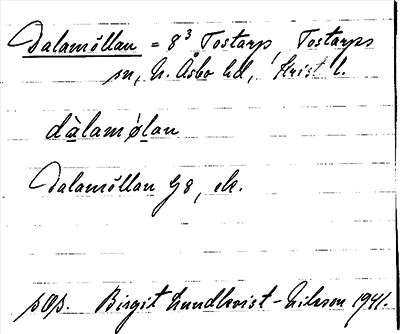 Dalamöllan = 8³ Tostarp, Tostarps
sn, N. Åsbo hd, Krist l.
dàlamø̀lan
Dalamöllan G8, ek.
sOp. Birgit Lundkvist-Nilsson 1941.